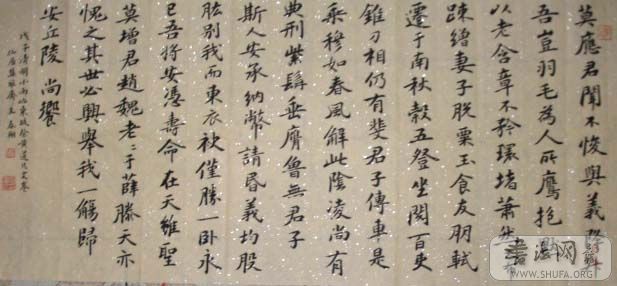 莫應君聞不悛與義
吾豈羽毛為人所鷹抱
以老含章不矜環堵蕭然
疎繒妻子脱粟玉食友朋軾
遷于南秋穀五登坐閱百吏
錐刀相仍有斐君子傳車是
乘穆如春風解此陰凌尚有
典刑紫髯垂膺魯無君子
斯人安承納幣請昏義均股
肱别我而東衣袂僅勝一卧永
已吾將安憑壽命在天雖聖
莫增君趙魏老〻于薛滕天亦
愧之其世必興舉我一觴歸
安丘陵 尚饗
戊子清明小雨臨東坡祭黃道氏文卷
書法网
WWW.SHUFA.ORG